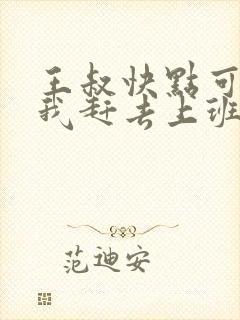 王叔快點可
我赶去上班
范迪安